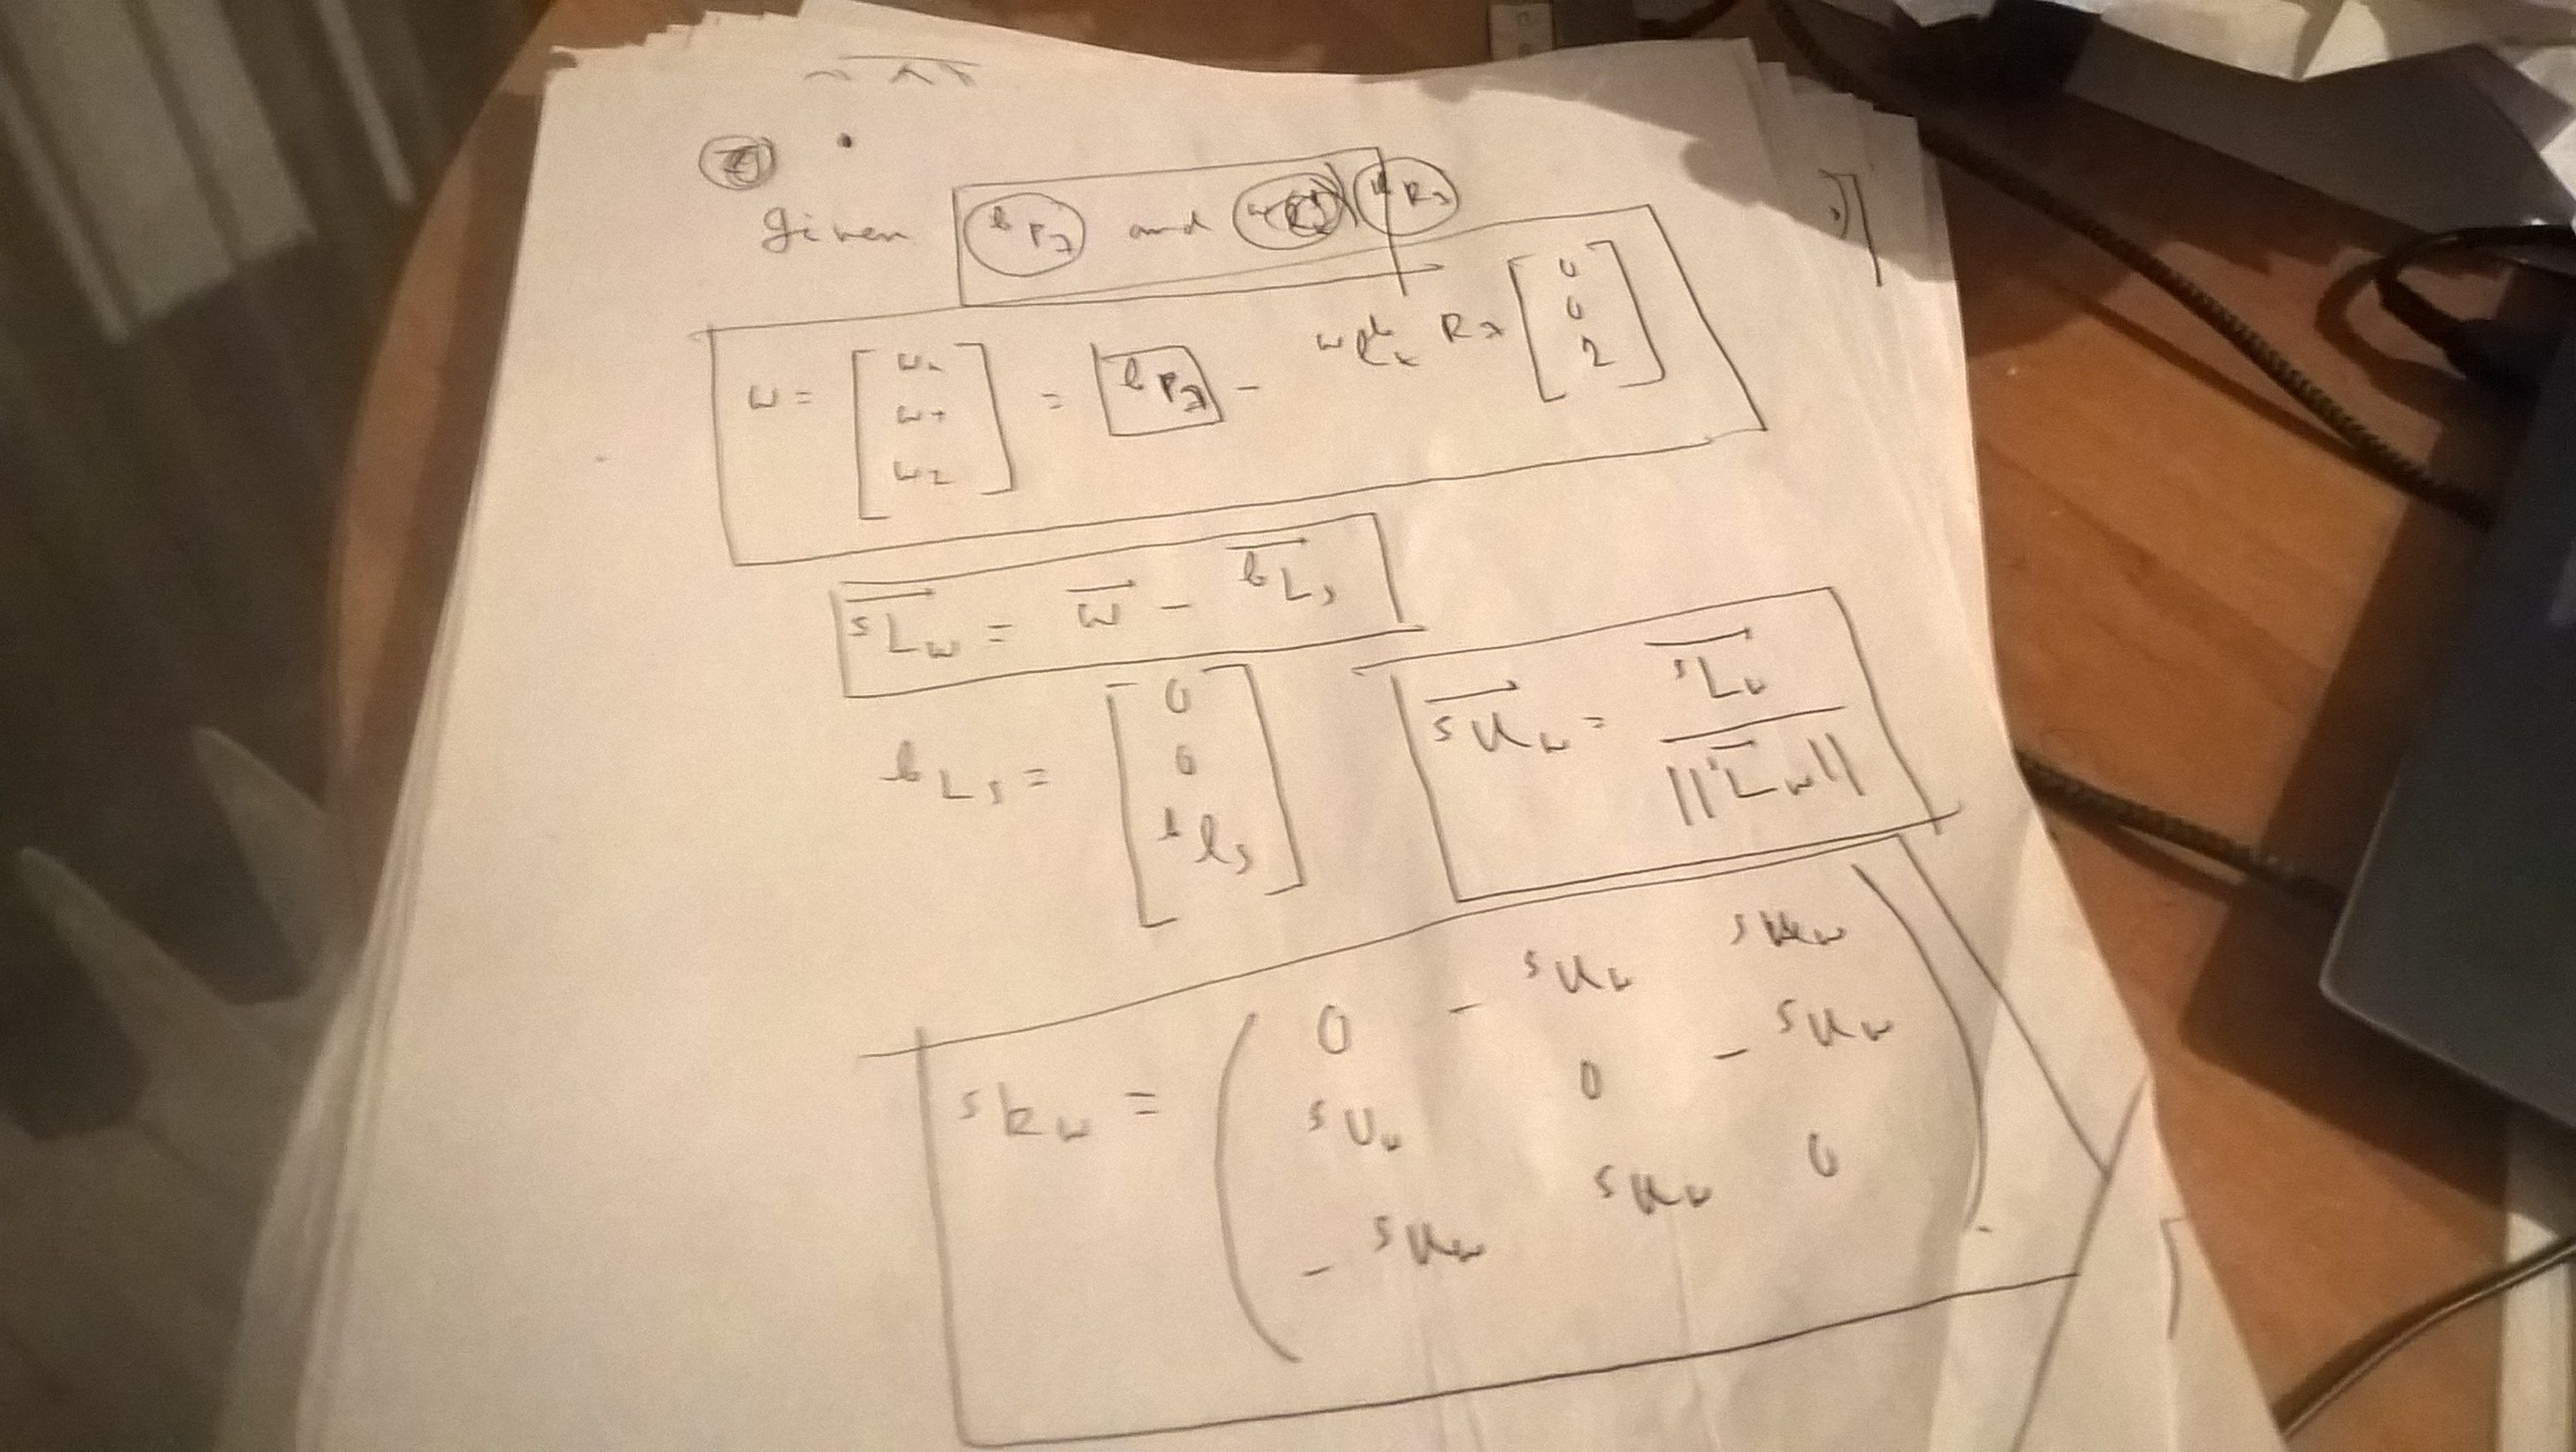 Given ᵇP₇ and R₇
w = [ wₓ wᵧ w_z ] = ᵇP₇ - R₇ [ 0 0 2 ]
ˢL_w = w - ᵇLₛ
ᵇLₛ = [ 0 0 ᵇlₛ ]
ˢu_w = ˢL_w / ||ˢL_w||
ˢk_w = ( 0 - ˢu_w ˢu_w
ˢu_w 0 - ˢu_w
- ˢu_w ˢu_w 0 )